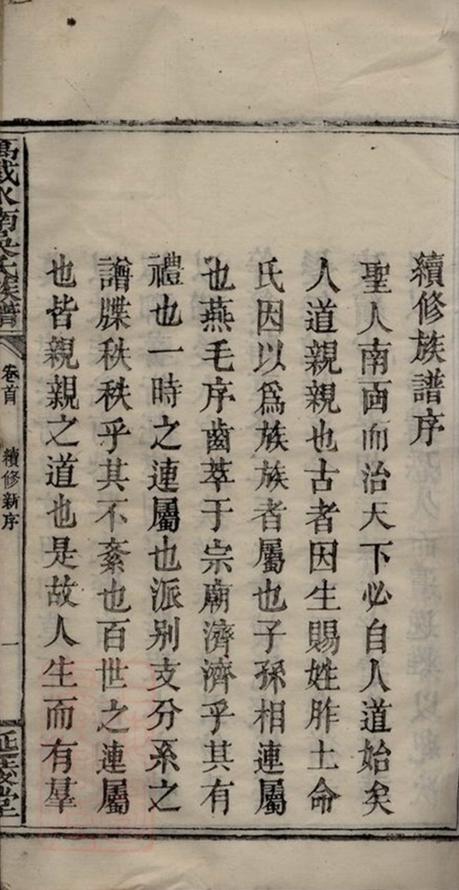 續修族譜序
聖人南面而治天下必自人道始矣
人道親親也古者因生賜姓胙土命
氏因以爲族族者屬也子孫相連屬
也燕毛序齒萃于宗廟濟濟乎其有
禮也一時之連屬也派别支分系之
譜牒秩秩乎其不紊也百世之連屬
也皆親親之道也是故人生而有羣
萬載水南吳氏族譜
卷首
續修新序
一
延陵堂